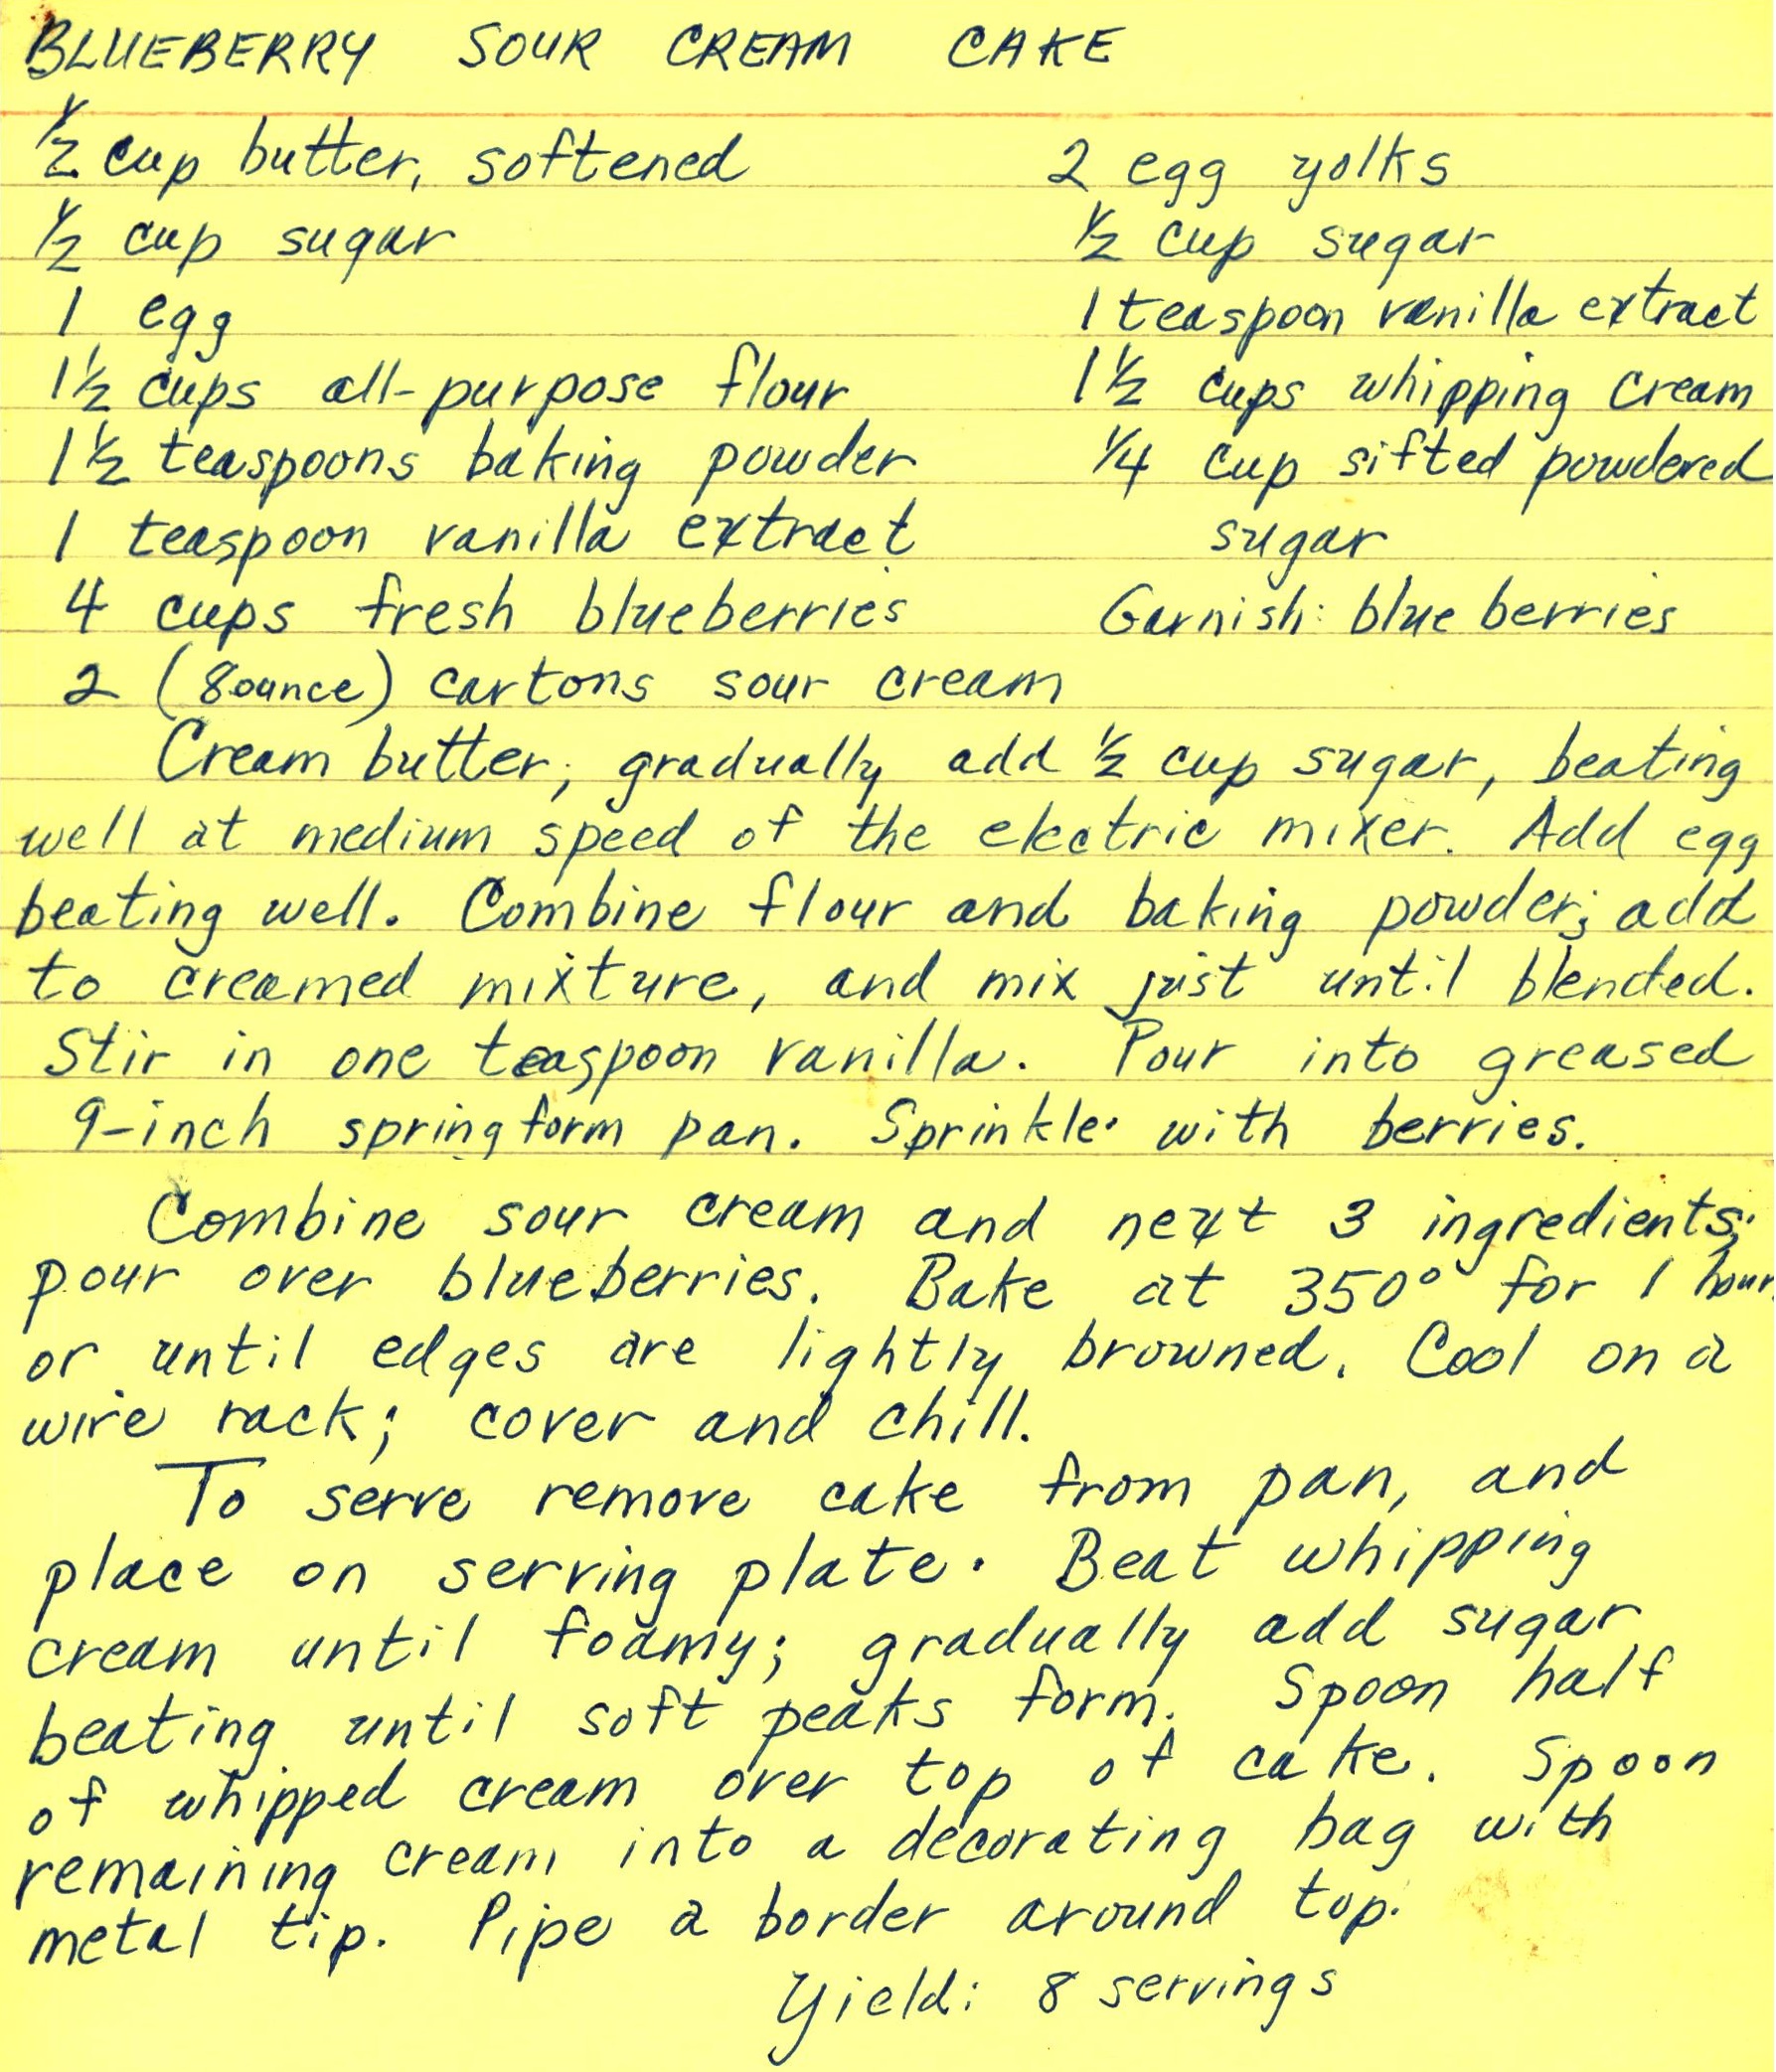 BLUEBERRY SOUR CREAM CAKE
½ cup butter, softened
½ cup sugar
1 egg
1½ cups all-purpose flour
1½ teaspoons baking powder
1 teaspoon vanilla extract
4 cups fresh blueberries
2 (8ounce) cartons sour cream
2 egg yolks
½ cup sugar
1 teaspoon vanilla extract
1½ cups whipping cream
¼ cup sifted powdered
sugar
Garnish: blueberries
Cream butter; gradually add ½ cup sugar, beating
well at medium speed of the electric mixer. Add egg
beating well. Combine flour and baking powder; add
to creamed mixture, and mix just until blended.
Stir in one teaspoon vanilla. Pour into greased
9-inch springform pan. Sprinkle with berries.
Combine sour cream and next 3 ingredients;
pour over blueberries. Bake at 350° for 1 hour
or until edges are lightly browned. Cool on a
wire rack; cover and chill.
To serve remove cake from pan, and
place on serving plate. Beat whipping
cream until foamy; gradually add sugar
beating until soft peaks form. Spoon half
of whipped cream over top of cake. Spoon
remaining cream into a decorating bag with
metal tip. Pipe a border around top.
Yield: 8 servings